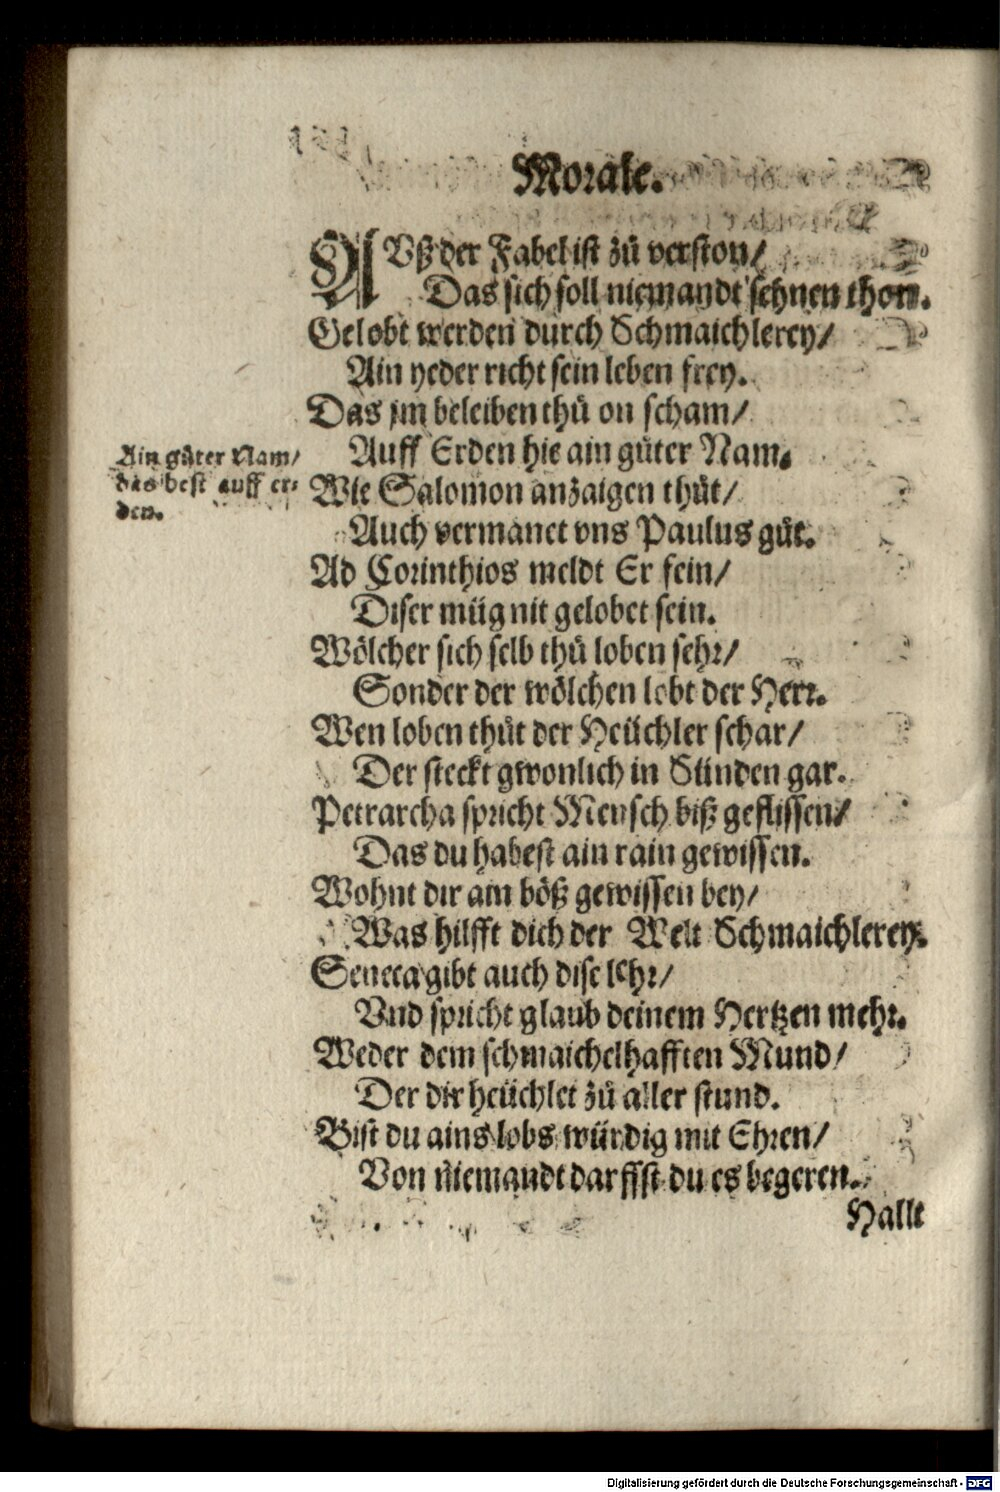 Morale.
AUß der Fabel ist zů verston/
Das sich soll niemandt sehnen thon.
Gelobt werden durch Schmaichlerey/
Ain yeder richt sein leben frey.
Das jm beleiben thů on scham/
Auff Erden hie ain gůter Nam.
Ain gůter Nam/
das best auff er⸗
den.
Wie Salomon anzaigen thůt/
Auch vermanet vns Paulus gůt.
Ad Corinthios meldt Er fein/
Diser müg nit gelobet sein.
Wölcher sich selb thů loben sehr/
Sonder der wölchen lobt der Herr.
Wen loben thůt der Heüchler schar/
Der steckt gwonlich in Sünden gar.
Petrarcha spricht Mensch biß geflissen/
Das du habest ain rain gewissen.
Wohnt dir ain böß gewissen bey/
Was hilfft dich der Welt Schmaichlerey.
Seneca gibt auch dise lehr/
Vnd spricht glaub deinem Hertzen mehr.
Weder dem schmaichelhafften Mund/
Der dir heüchlet zů aller stund.
Bist du ains lobs würdig mit Ehren/
Von niemandt darffst du es begeren.
Hallt
Digitalisierung gefördert durch die Deutsche Forschungsgemeinschaft - DFG